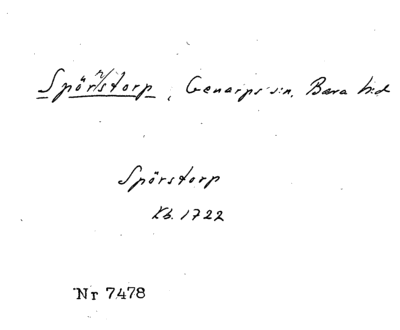 Spörstorp, Genarps s:n, Bara h:d
Spörstorp
Kb. 1722
Nr 7478